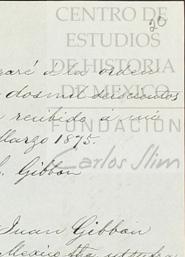 20
CENTRO DE
ESTUDIOS
DE HISTORIA
DE MEXICO
FUNDACIÓN
Carlos Slim
aré a la orden
dos mil
recibido á mi
Marzo 1875.
Gibbon
Juan Gibbon
Mexico